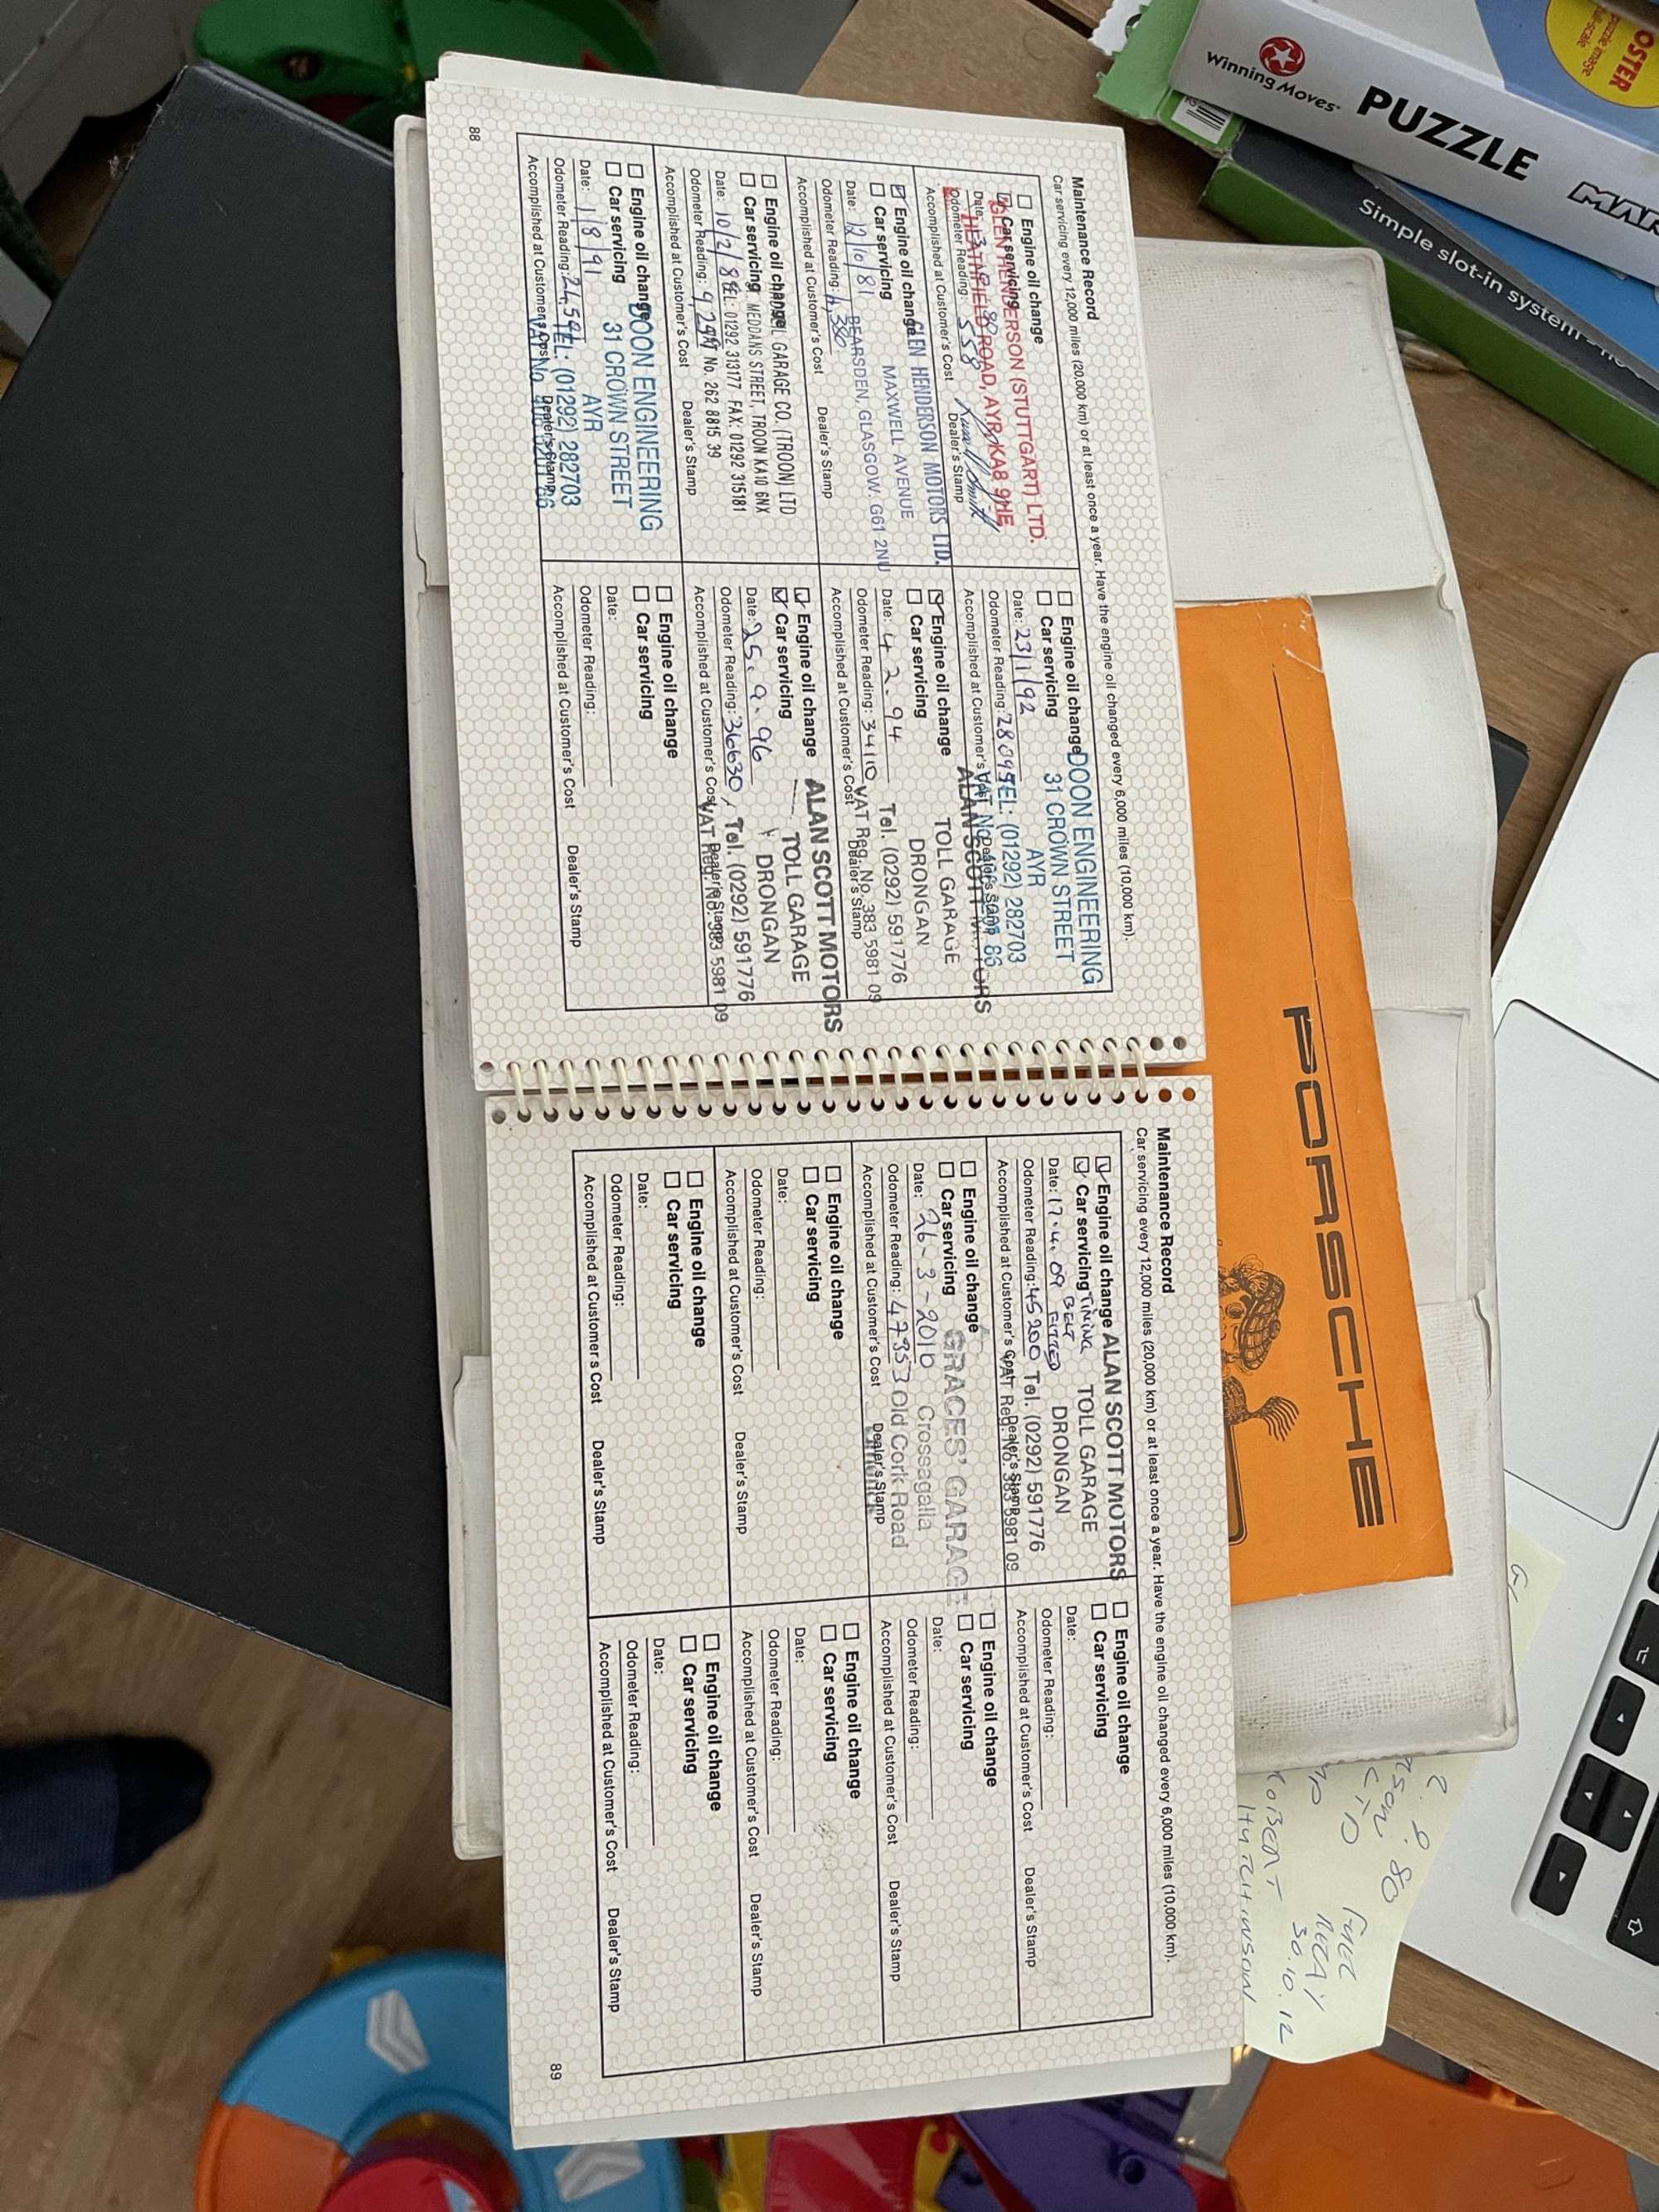 Maintenance Record
Car servicing every 12,000 miles (20,000 km) or at least once a year. Have the engine oil changed every 6,000 miles (10,000 km).
Engine oil change
Car servicing
GLEN HENDERSON (STUTTGART) LTD.
HEATHFIELD ROAD, AYR, KA8 9HE
Date:
Odometer Reading: 558
Accomplished at Customer's Cost Dealer's Stamp
Engine oil change
Car servicing
GLEN HENDERSON MOTORS LTD.
MAXWELL AVENUE
BEARSDEN, GLASGOW. G61 2NU
Date: 12/10/81
Odometer Reading: 6,380
Accomplished at Customer's Cost Dealer's Stamp
Engine oil change
Car servicing
GARAGE CO. (TROON) LTD
MEDDANS STREET, TROON KA10 6NX
TEL: 01292 313177 FAX: 01292 315181
No. 262 8815 39
Date: 10/2/8
Odometer Reading: 9
Accomplished at Customer's Cost Dealer's Stamp
Engine oil change
Car servicing
DOON ENGINEERING
31 CROWN STREET
AYR
TEL: (01292) 282703
VAT No
Date: 1/8/91
Odometer Reading: 24,59
Accomplished at Customer's Cost Dealer's Stamp
88
Engine oil change
Car servicing
DOON ENGINEERING
31 CROWN STREET
AYR
TEL: (01292) 282703
VAT No 66
Date: 23/1/92
Odometer Reading: 28095
Accomplished at Customer's Dealer's Stamp
Engine oil change
Car servicing
ALAN SCOTT MOTORS
TOLL GARAGE
DRONGAN
Tel. (0292) 591776
VAT Reg. No. 383 5981 09
Date: 4 2. 94
Odometer Reading: 34110
Accomplished at Customer's Cost Dealer's Stamp
Engine oil change
Car servicing
ALAN SCOTT MOTORS
TOLL GARAGE
DRONGAN
Tel. (0292) 591776
VAT Reg. No. 383 5981 09
Date: 25. 9. 96
Odometer Reading: 36630
Accomplished at Customer's Cost Dealer's Stamp
Engine oil change
Car servicing
Date:
Odometer Reading:
Accomplished at Customer's Cost Dealer's Stamp
Maintenance Record
Car servicing every 12,000 miles (20,000 km) or at least once a year. Have the engine oil changed every 6,000 miles (10,000 km).
Engine oil change
Car servicing
TIMING
BELT
FITTED
ALAN SCOTT MOTORS
TOLL GARAGE
DRONGAN
Tel. (0292) 591776
VAT Reg. No. 383 5981 09
Date: 17.4.09
Odometer Reading: 45200
Accomplished at Customer's Cost Dealer's Stamp
Engine oil change
Car servicing
GRACES' GARAGE
Crossagalla
Old Cork Road
Limerick
Date: 26-3-2016
Odometer Reading: 47353
Accomplished at Customer's Cost Dealer's Stamp
Engine oil change
Car servicing
Date:
Odometer Reading:
Accomplished at Customer's Cost Dealer's Stamp
Engine oil change
Car servicing
Date:
Odometer Reading:
Accomplished at Customer's Cost Dealer's Stamp
Engine oil change
Car servicing
Date:
Odometer Reading:
Accomplished at Customer's Cost Dealer's Stamp
Engine oil change
Car servicing
Date:
Odometer Reading:
Accomplished at Customer's Cost Dealer's Stamp
Engine oil change
Car servicing
Date:
Odometer Reading:
Accomplished at Customer's Cost Dealer's Stamp
Engine oil change
Car servicing
Date:
Odometer Reading:
Accomplished at Customer's Cost Dealer's Stamp
89
PORSCHE
Winning Moves
PUZZLE
OSTER
puzzle image
Simple slot-in system
30.10.12
HUTCHINSON